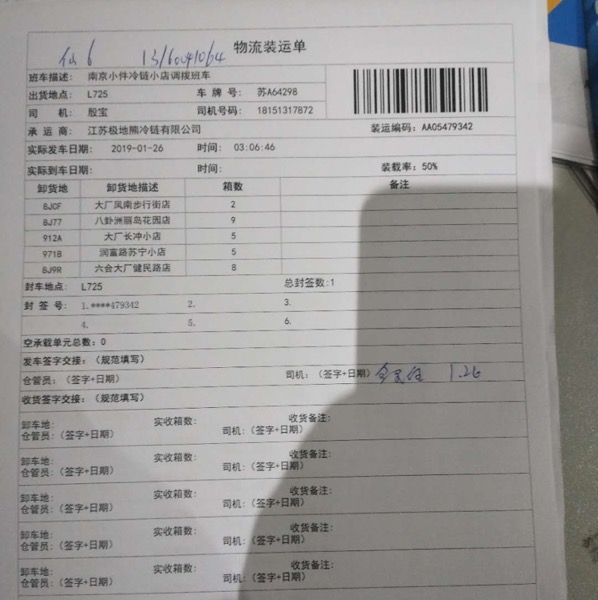 物流装运单
仙6 13160041064
班车描述: 南京小件冷链小店调拨班车
出货地点: L725 车 牌 号: 苏A64298
司 机: 殷宝 司机号码: 18151317872
承 运 商: 江苏极地熊冷链有限公司 装运编码: AA05479342
实际发车日期: 2019-01-26 时间: 03:06:46
实际到车日期: 时间: 装载率: 50%
卸货地 卸货地描述 箱数 备注
8JCF 大厂凤南步行街店 2
8J77 八卦洲丽岛花园店 9
912A 大厂长冲小店 5
971B 润富路苏宁小店 5
8J9R 六合大厂健民路店 8
封车地点: L725 总封签数:1
封 签 号: 1.****479342 2. 3.
4. 5. 6.
空承载单元总数: 0
发车签字交接: (规范填写)
仓管员: (签字+日期) 司机: (签字+日期) 1.26
收货签字交接: (规范填写)
卸车地: 实收箱数: 收货备注:
仓管员: (签字+日期) 司机: (签字+日期)
卸车地: 实收箱数: 收货备注:
仓管员: (签字+日期) 司机: (签字+日期)
卸车地: 实收箱数: 收货备注:
仓管员: (签字+日期) 司机: (签字+日期)
卸车地: 实收箱数: 收货备注:
仓管员: (签字+日期) 司机: (签字+日期)
卸车地: 实收箱数: 收货备注:
仓管员: (签字+日期) 司机: (签字+日期)